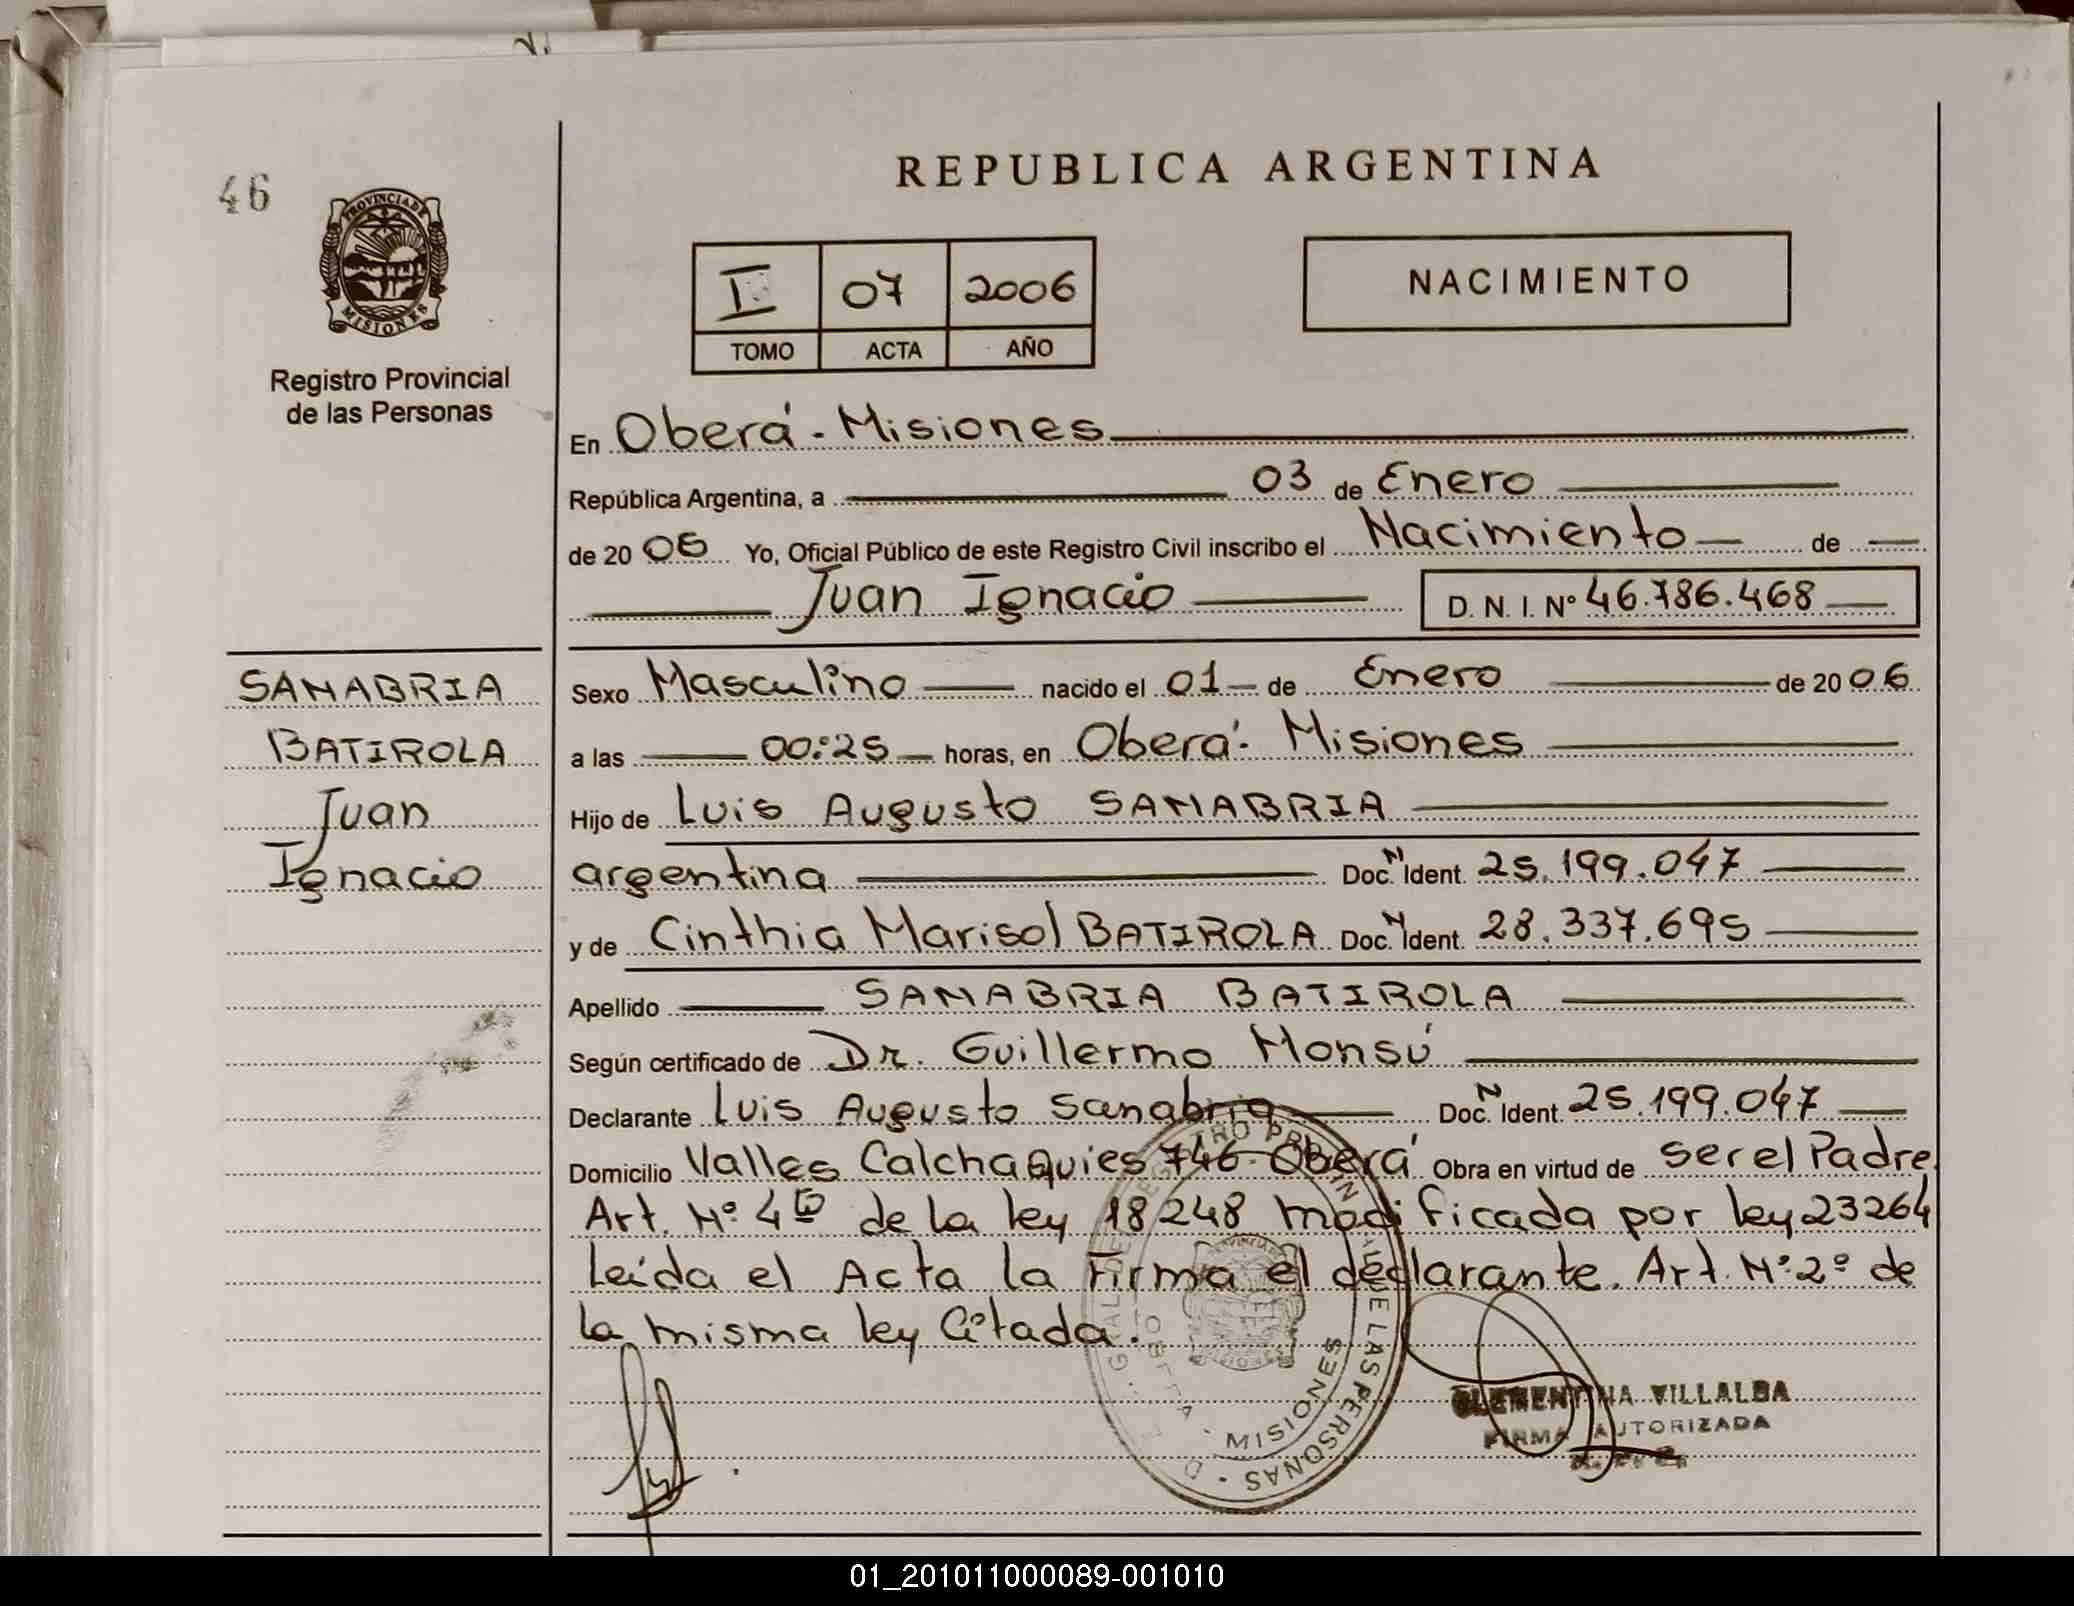 46
PROVINCIA DE
MISIONES
Registro Provincial
de las Personas
REPUBLICA ARGENTINA
I 07 2006
TOMO ACTA AÑO
NACIMIENTO
En Oberá - Misiones
República Argentina, a 03 de Enero
de 20 06 Yo, Oficial Público de este Registro Civil inscribo el Nacimiento de
Juan Ignacio D. N. I. Nº 46.786.468
SANABRIA
BATIROLA
Juan
Ignacio
Sexo Masculino nacido el 01 de Enero de 20 06
a las 00:25 horas, en Oberá - Misiones
Hijo de Luis Augusto SANABRIA
argentina Doc. N Ident. 25.199.047
y de Cinthia Marisol BATIROLA Doc. N Ident. 28.337.695
Apellido SANABRIA BATIROLA
Según certificado de Dr. Guillermo Monsú
Declarante Luis Augusto Sanabria Doc. N Ident. 25.199.047
Domicilio Valles Calchaquies 746 - Oberá Obra en virtud de ser el Padre
Art. Nº 4to de la ley 18248 modificada por ley 23264
Leída el Acta la Firma el declarante. Art. Nº 2º de
la misma ley Citada.
MISIONES
DE LAS PERSONAS
CLEMENTINA VILLALBA
FIRMA AUTORIZADA
01_201011000089-001010